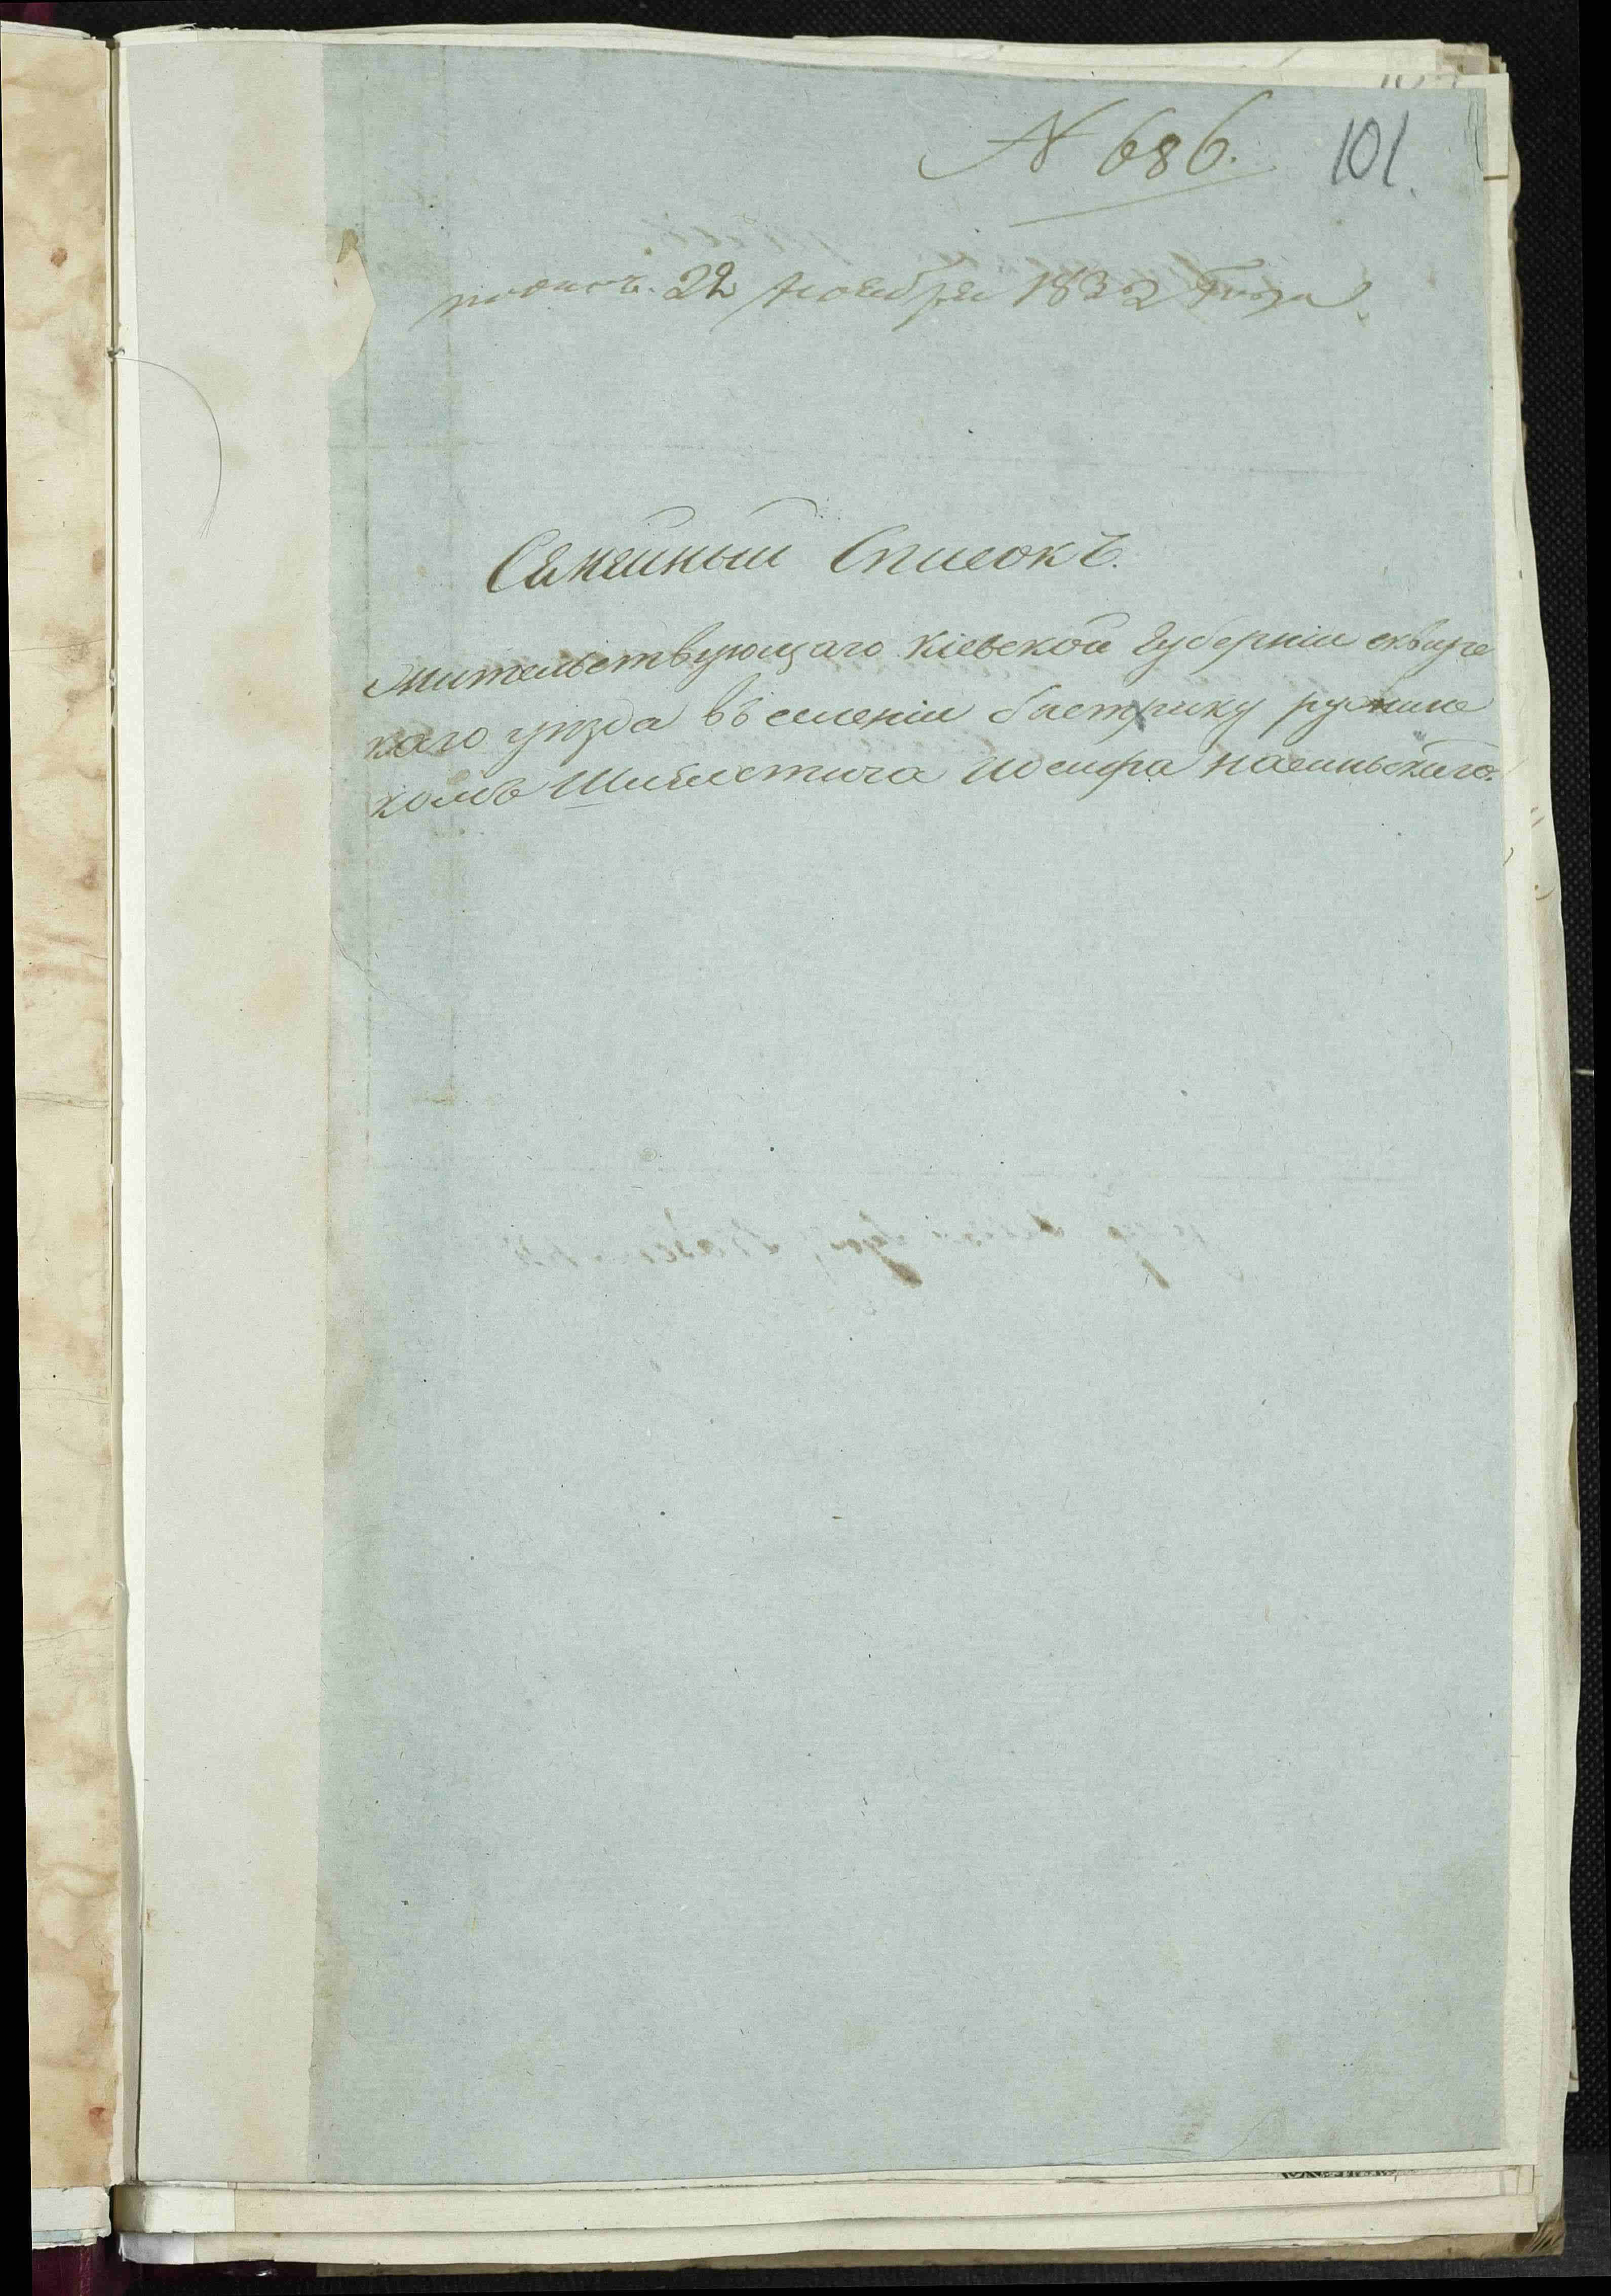 N 686. 101.
22 Ноября 1832 Года.
Семейный Список Ъ.
жительствующаго Кіевской Губерніи сквирс
каго уезда въ селеніи быстрику ружинс
комъ Шляхтича Іосифа